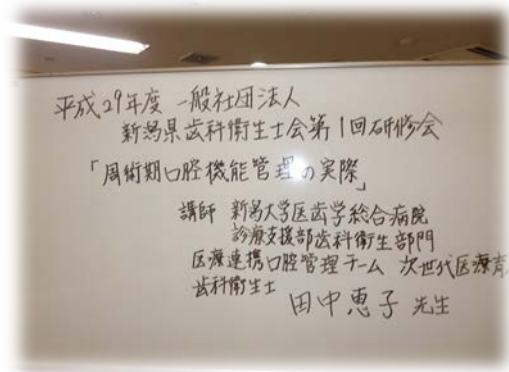 平成29年度 一般社団法人
新潟県歯科衛生士会第1回研修会
「周術期口腔機能管理の実際」
講師 新潟大学医歯学総合病院
診療支援部歯科衛生部門
医療連携口腔管理チーム 次世代医療育
歯科衛生士
田中恵子 先生